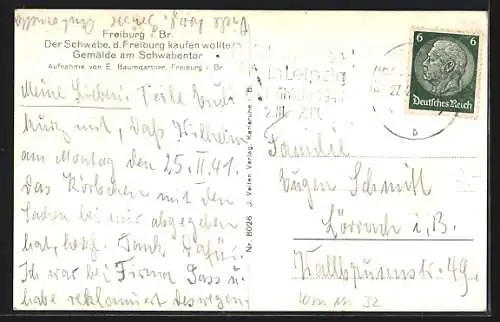 Freiburg i. Br.
Der Schwabe, d. Freiburg kaufen wollte!
Gemälde am Schwabentor
Aufnahme von E. Baumgartner, Freiburg i. Br.
Meine Lieben! Teile Euch
kurz mit, daß Wilhelm
am Montag den 25. II. 41.
das Körbchen mit den
Sachen bei mir abgegeben
hat, herzl. Dank dafür.
Ich war bei Firma
habe reklamiert deswegen,
Nr. 8026 J. Velten Verlag, Karlsruhe i. B.
Leipzig
6 6
Deutsches Reich
27.
b
Familie
Eugen Schmitt
Lörrach i. B.
49.
32